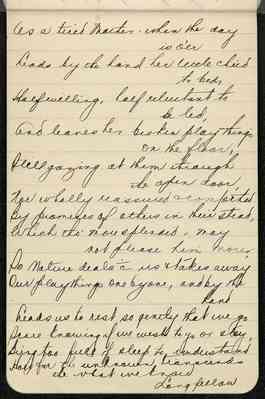 As a tired Mother when the day
is o'er
Leads by the hand her little child
to bed,
Half willing, half reluctant to
be led,
And leaves her broken playthings
on the floor,
Still gazing at them through
the open door,
Nor wholly reassured & comforted
By promises of others in their stead,
Which tho' more splendid, may
not please him more;
So Nature deals with us & takes away
Our playthings one by one, and by the
hand
Leads us to rest so gently that we go
Scarce knowing if we wish to go or stay,
Being too full of sleep to understand
How far the unknown transcends
the what we know
Longfellow